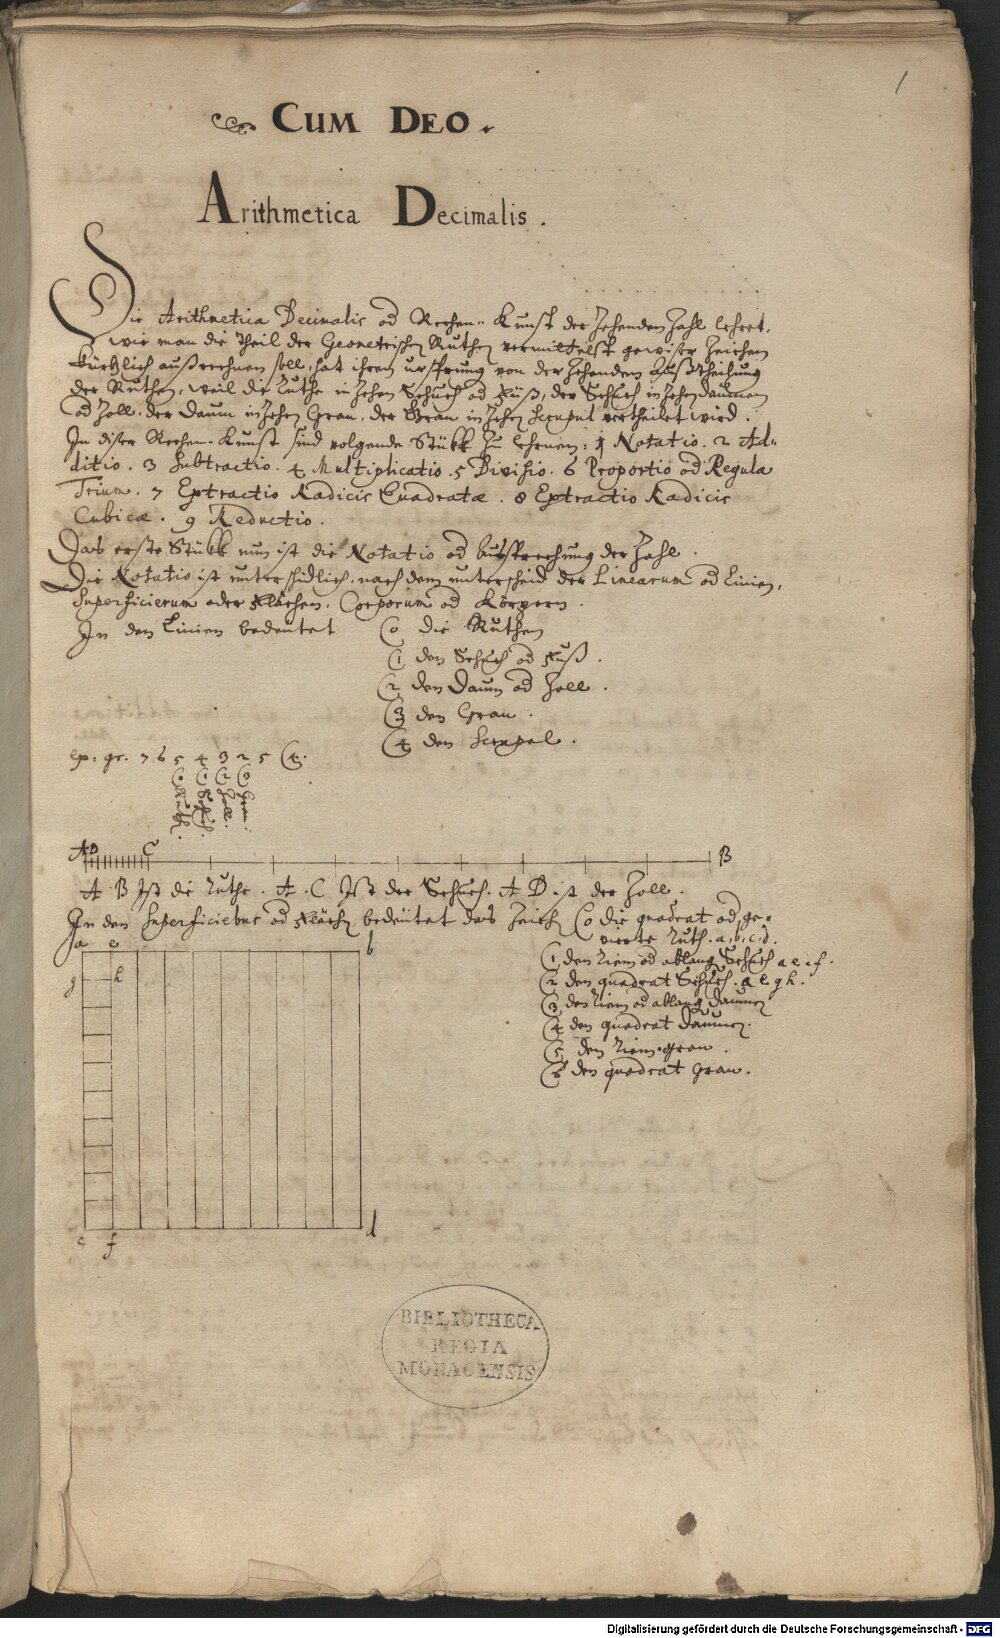 1
CUM DEO.
Arithmetica Decimalis.
Die Arithmetica Decimalis od Rechen-Kunst der Zehenden Zahl lehret,
wie man die Theil der Geometrischen Ruthen vermittelst gewiser Zeichen
kürtzlich außrechnen soll, hat ihren ursprung von der Zehenden Außtheilung
der Ruthen, weil die Ruthe in Zehen Schuch od Füß, der Schuch in Zehen Daumen
od Zoll, der Daum in Zehen Gran, der Gran in Zehen Scrupel vertheilet wird.
In diser Rechen-Kunst sind volgende Stükk zu lehrnen: 1 Notatio. 2 Ad-
ditio. 3 Subtractio. 4 Multiplicatio. 5 Divisio. 6 Proportio od Regula
Trium. 7 Extractio Radicis Quadratæ. 8 Extractio Radicis
Cubicæ. 9 Reductio.
Das erste Stükk nun ist die Notatio od Außsprechung der Zahl.
Die Notatio ist unterschidlich, nach dem unterscheid der Linearum od Linien,
Superficierum oder Flächen, Corporum od Körpern.
In den Linien bedeutet (0 die Ruthen
(1 den Schuch od Fuß.
(2 den Daum od Zoll.
(3 den Gran.
(4 den Scrupel.
ex: gr. 7 6 5 4 3 2 5 (4.
(0 (1 (2 (3
Ruth. Schuch. Zoll. Gran.
A D C B
A B Ist die Ruthe. A. C Ist der Schuch. A D ist der Zoll.
In den Superficiebus od Flächen bedeutet das Zeichen (0 die quadrat od ge-
vierte Ruth. a, b, c, d.
(1 den Riem od ablang Schuch a e c f.
(2 den quadrat Schuch. a e g h.
(3 den Riem od ablang Daumen
(4 den quadrat Daumen.
(5 den Riem-gran.
(6 den quadrat Gran.
a e b
g h
c f d
BIBLIOTHECA
REGIA
MONACENSIS
Digitalisierung gefördert durch die Deutsche Forschungsgemeinschaft - DFG